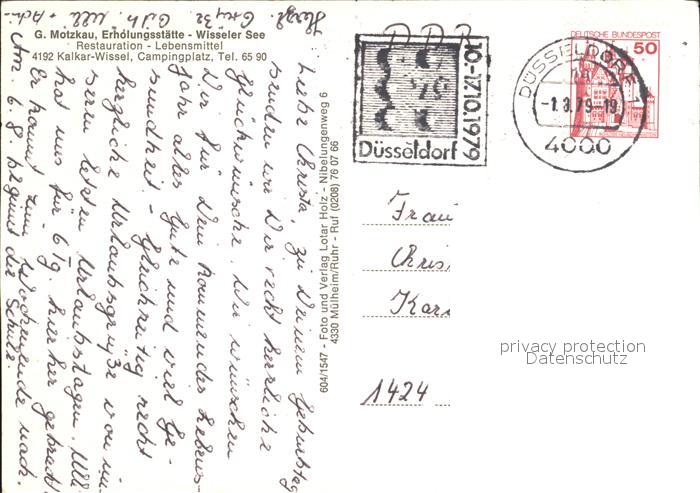 G. Motzkau, Erholungsstätte - Wisseler See
Restauration - Lebensmittel
4192 Kalkar-Wissel, Campingplatz, Tel. 65 90
Liebe Christa, zu Deinem Geburtstag
senden wir Dir recht herzliche
Glückwünsche. Wir wünschen
Dir für Dein kommendes Lebens-
jahr alles Gute und viel Ge-
sundheit - Gleichzeitig recht
herzliche Urlaubsgrüße von un-
seren letzten Urlaubstagen. Ulli
hat uns für 6 Tg. hierher gebracht
Er kommt zum Wochenende nach.
Am 6.8. beginnt die Schule.
Herzl. Grüße Ulli +
604/1547 - Foto und Verlag Lotar Holz - Nibelungenweg 6
4330 Mülheim/Ruhr - Ruf (0208) 76 07 66
DDR
10.-17.10.1979
Düsseldorf
DÜSSELDORF
-1.8.79-19
4000
DEUTSCHE BUNDESPOST
50
Frau
Chris
Kar
1424
privacy protection
Datenschutz